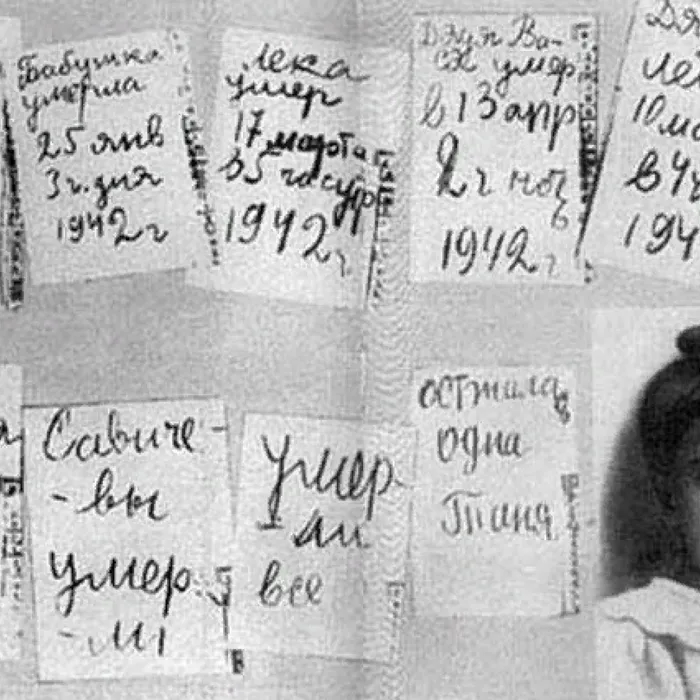 Бабушка
умерла
25 янв
3 ч. дня
1942 г
Лека
умер
17 марта
в 5 час утр
1942 г
Дядя Ва-
ся умер
в 13 апр
2 ч ноч
1942 г
Дя
Ле
10 ма
в 4 ч
194
Савиче-
-вы
умер
-ли
умер
-ли
все
осталась
одна
Таня